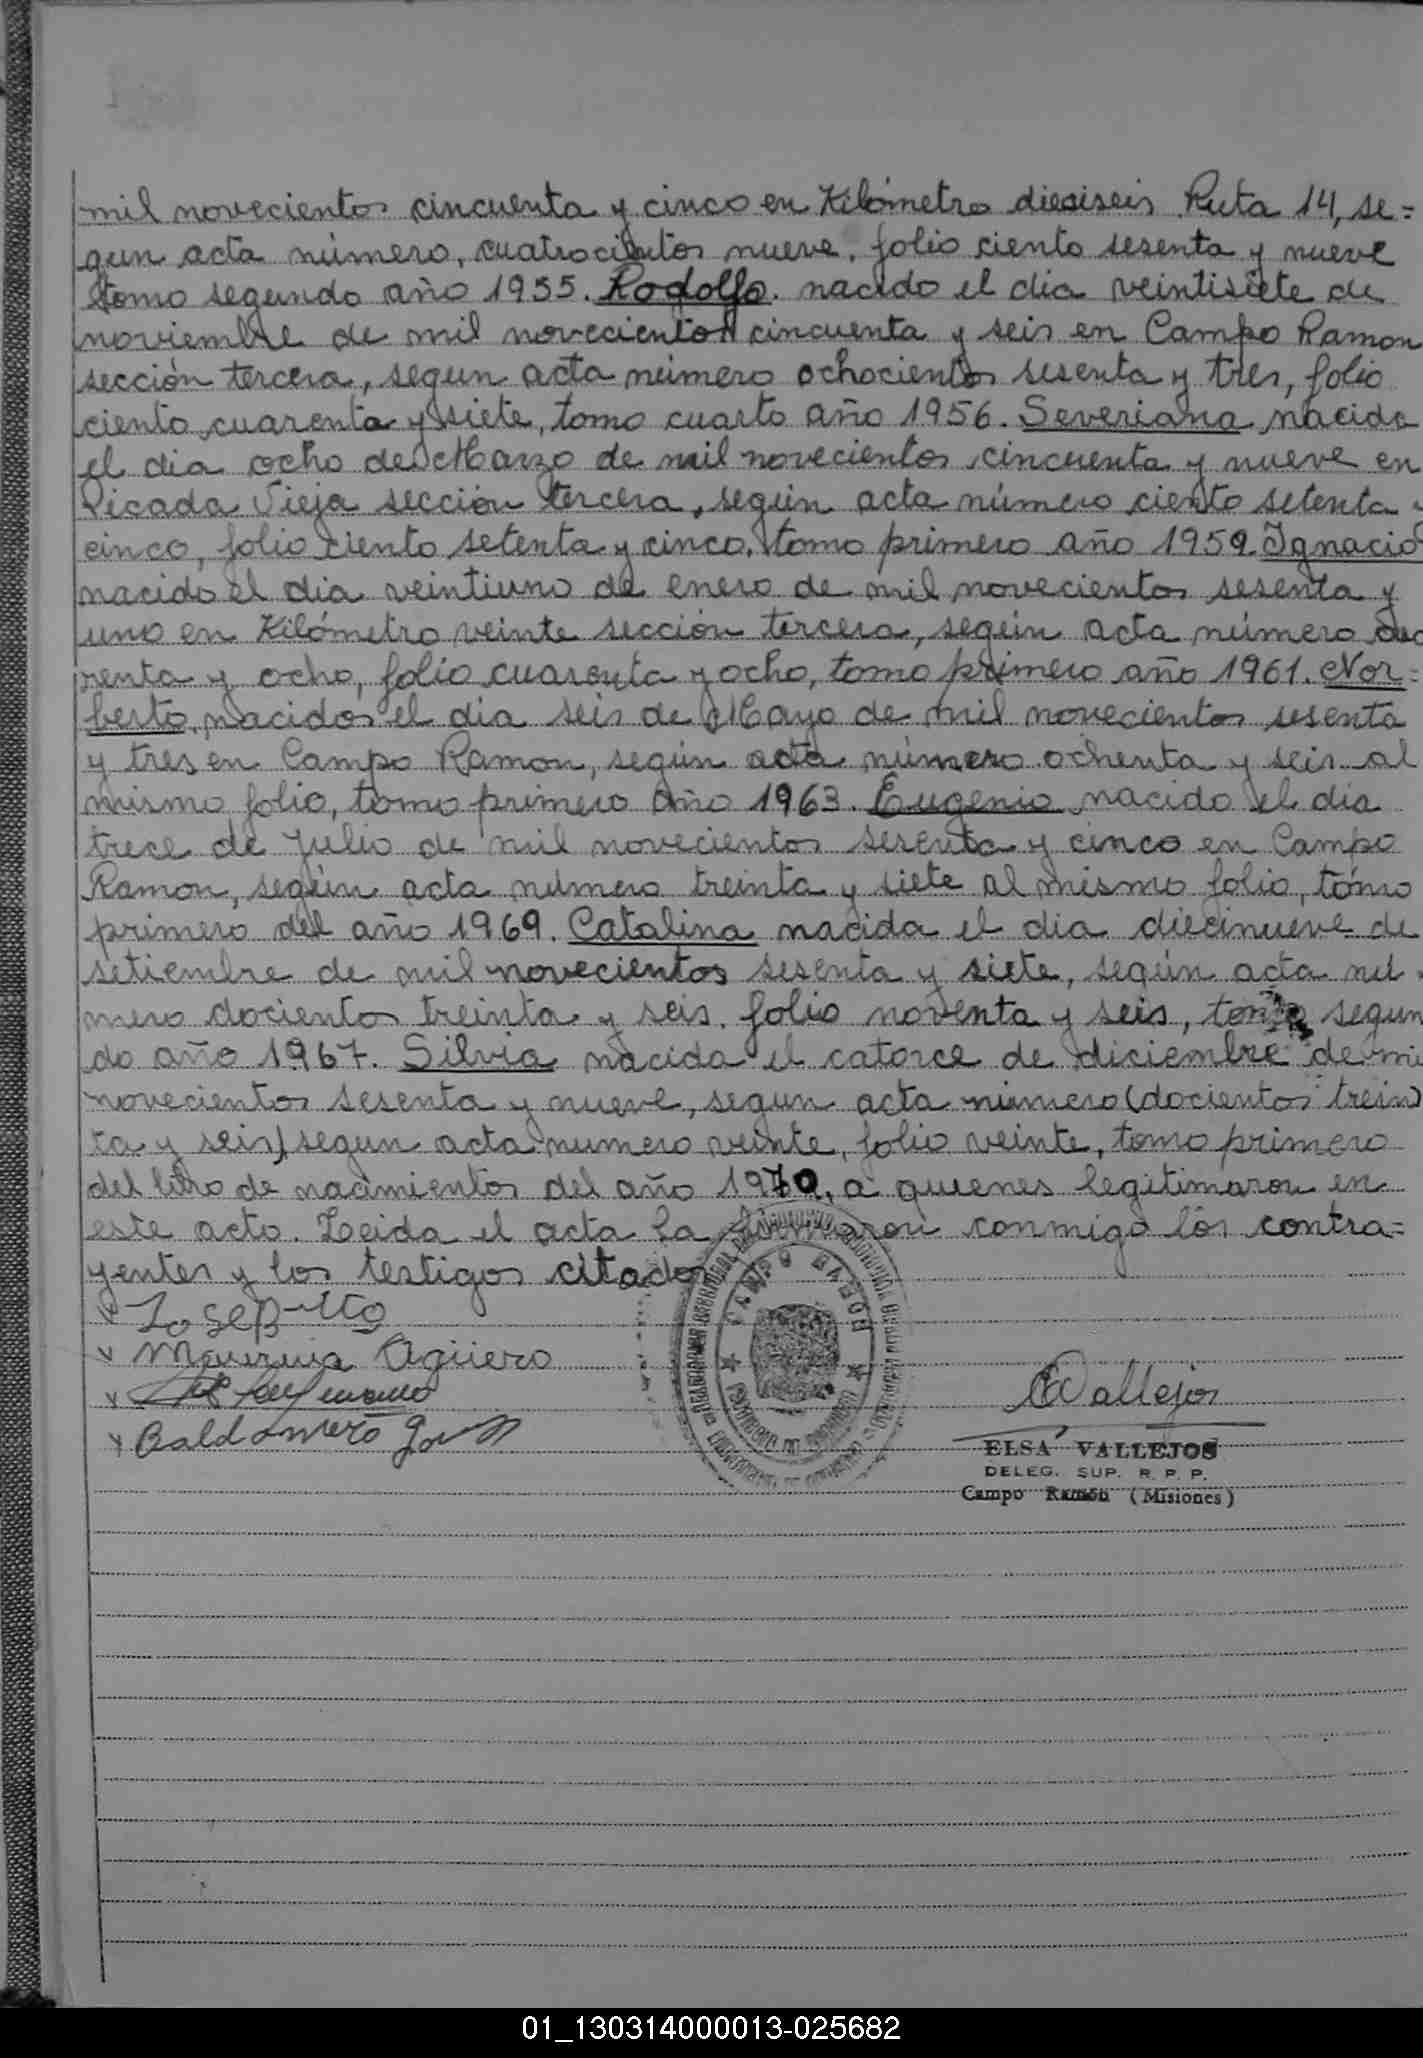 mil novecientos cincuenta y cinco en Kilómetro dieciseis Ruta 14, se=
gun acta número, cuatrocientos nueve, folio ciento sesenta y nueve
tomo segundo año 1955. Rodolfo. nacido el dia veintisiete de
noviembre de mil novecientos cincuenta y seis en Campo Ramon
sección tercera, segun acta número ochocientos sesenta y tres, folio
ciento cuarenta y siete, tomo cuarto año 1956. Severiana nacida
el dia ocho de Marzo de mil novecientos cincuenta y nueve en
Picada Vieja sección tercera, según acta número ciento setenta y
cinco, folio ciento setenta y cinco, tomo primero año 1959. Ignacio
nacido el dia veintiuno de enero de mil novecientos sesenta y
uno en Kilómetro veinte sección tercera, según acta número cua
renta y ocho, folio cuarenta y ocho, tomo primero año 1961. Nor=
berto, nacidos el dia seis de Mayo de mil novecientos sesenta
y tres en Campo Ramon, según acta número ochenta y seis al
mismo folio, tomo primero año 1963. Eugenio nacido el dia
trece de Julio de mil novecientos sesenta y cinco en Campo
Ramon, según acta número treinta y siete al mismo folio, tomo
primero del año 1969. Catalina nacida el dia diecinueve de
setiembre de mil novecientos sesenta y siete, según acta nú
mero docientos treinta y seis. folio noventa y seis, tomo segun
do año 1967. Silvia nacida el catorce de diciembre de mi
novecientos sesenta y nueve, segun acta número (docientos trein
ta y seis) segun acta numero veinte, folio veinte, tomo primero
del libro de nacimientos del año 1970, a quienes legitimaron en
este acto. Leida el acta la firmaron conmigo los contra=
yentes y los testigos citados
Agüero
Baldomero
CAMPO RAMON
EVallejos
ELSA VALLEJOS
DELEG. SUP. R. P. P.
Campo Ramón (Misiones)
01_130314000013-025682